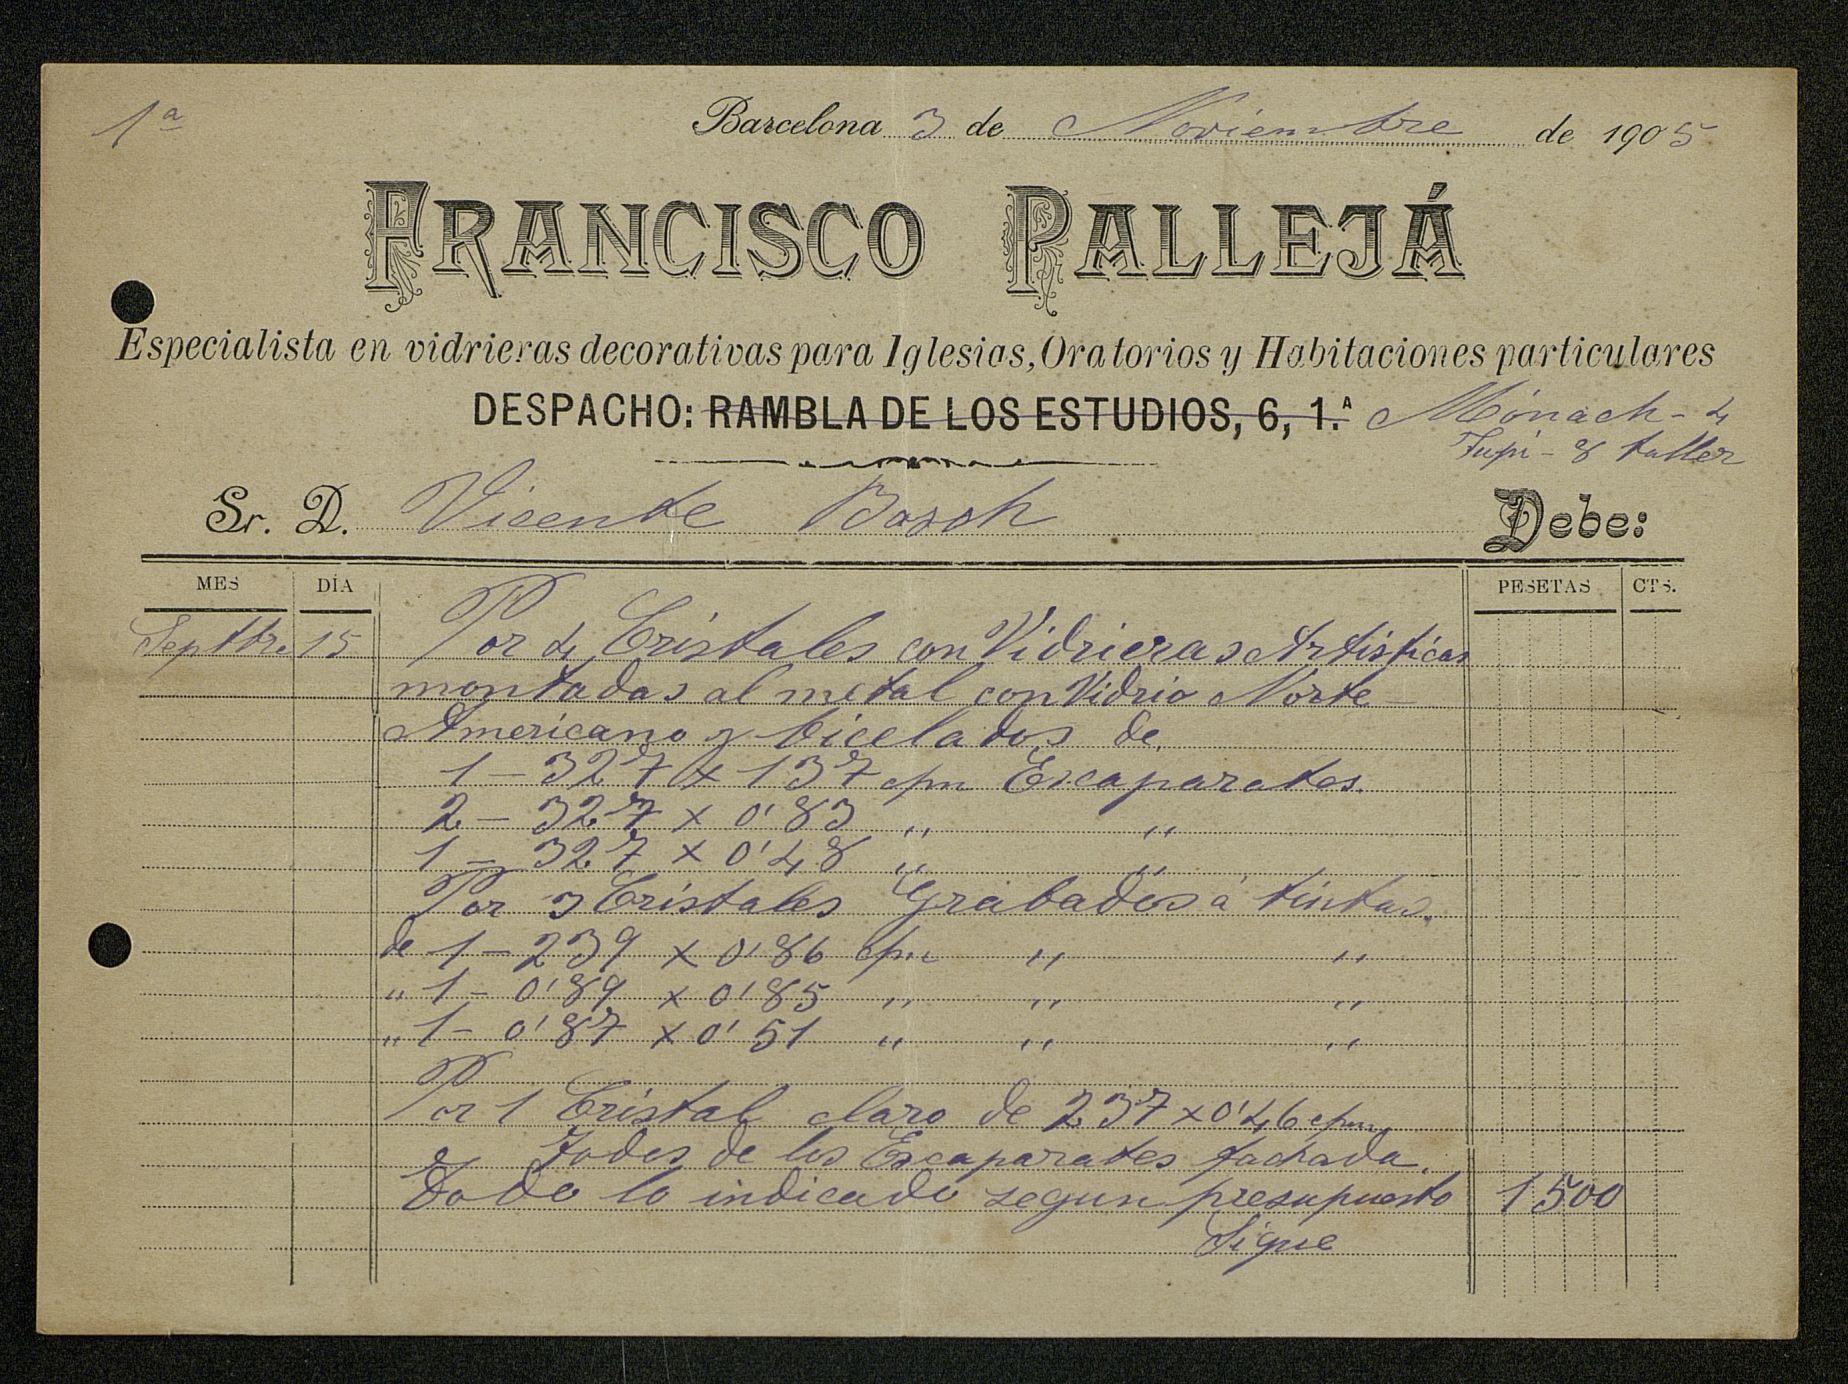 1ª
Barcelona 3 de Noviembre de 1905
FRANCISCO PALLEJÁ
Especialista en vidrieras decorativas para Iglesias, Oratorios y Habitaciones particulares
DESPACHO: RAMBLA DE LOS ESTUDIOS, 6, 1.ᴬ Mónach - 4
Tupi - 8 taller
Sr. D. Vicente Bosch Debe:
MES DÍA PESETAS CTS.
Septbre 15 Por 4 Cristales con Vidrieras Artisticas
montadas al metal con Vidrio Norte-
Americano y bicelados de
1 - 327 x 137 cpm Escaparates.
2 - 327 x 0'83 " "
1 - 327 x 0'48 " "
Por 3 Cristales Grabados á tintas.
de 1 - 239 x 0'86 cpm " "
" 1 - 0'89 x 0'85 " " "
" 1 - 0'87 x 0'51 " " "
Por 1 Cristal claro de 237 x 0'46 cpm
Todos de los Escaparates fachada.
Todo lo indicado segun presupuesto 1500
Sigue